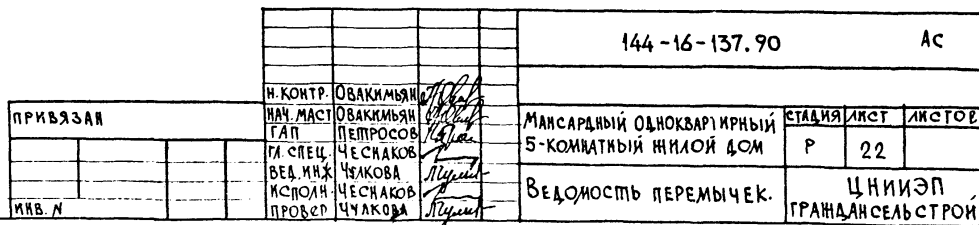 144-16-137.90 АС
Н.КОНТР. ОВАКИМЬЯН
ПРИВЯЗАН
НАЧ. МАСТ ОВАКИМЬЯН
ГАП ПЕТРОСОВ
ГЛ. СПЕЦ. ЧЕСНАКОВ
ВЕД. ИНЖ ЧУЛКОВА
ИСПОЛН. ЧЕСНАКОВ
ПРОВЕР ЧУЛКОВА
ИНВ. N
МАНСАРДНЫЙ ОДНОКВАРТИРНЫЙ
5-КОМНАТНЫЙ ЖИЛОЙ ДОМ
СТАДИЯ ЛИСТ ЛИСТОВ
Р 22
ВЕДОМОСТЬ ПЕРЕМЫЧЕК.
ЦНИИЭП
ГРАЖДАНСЕЛЬСТРОЙ